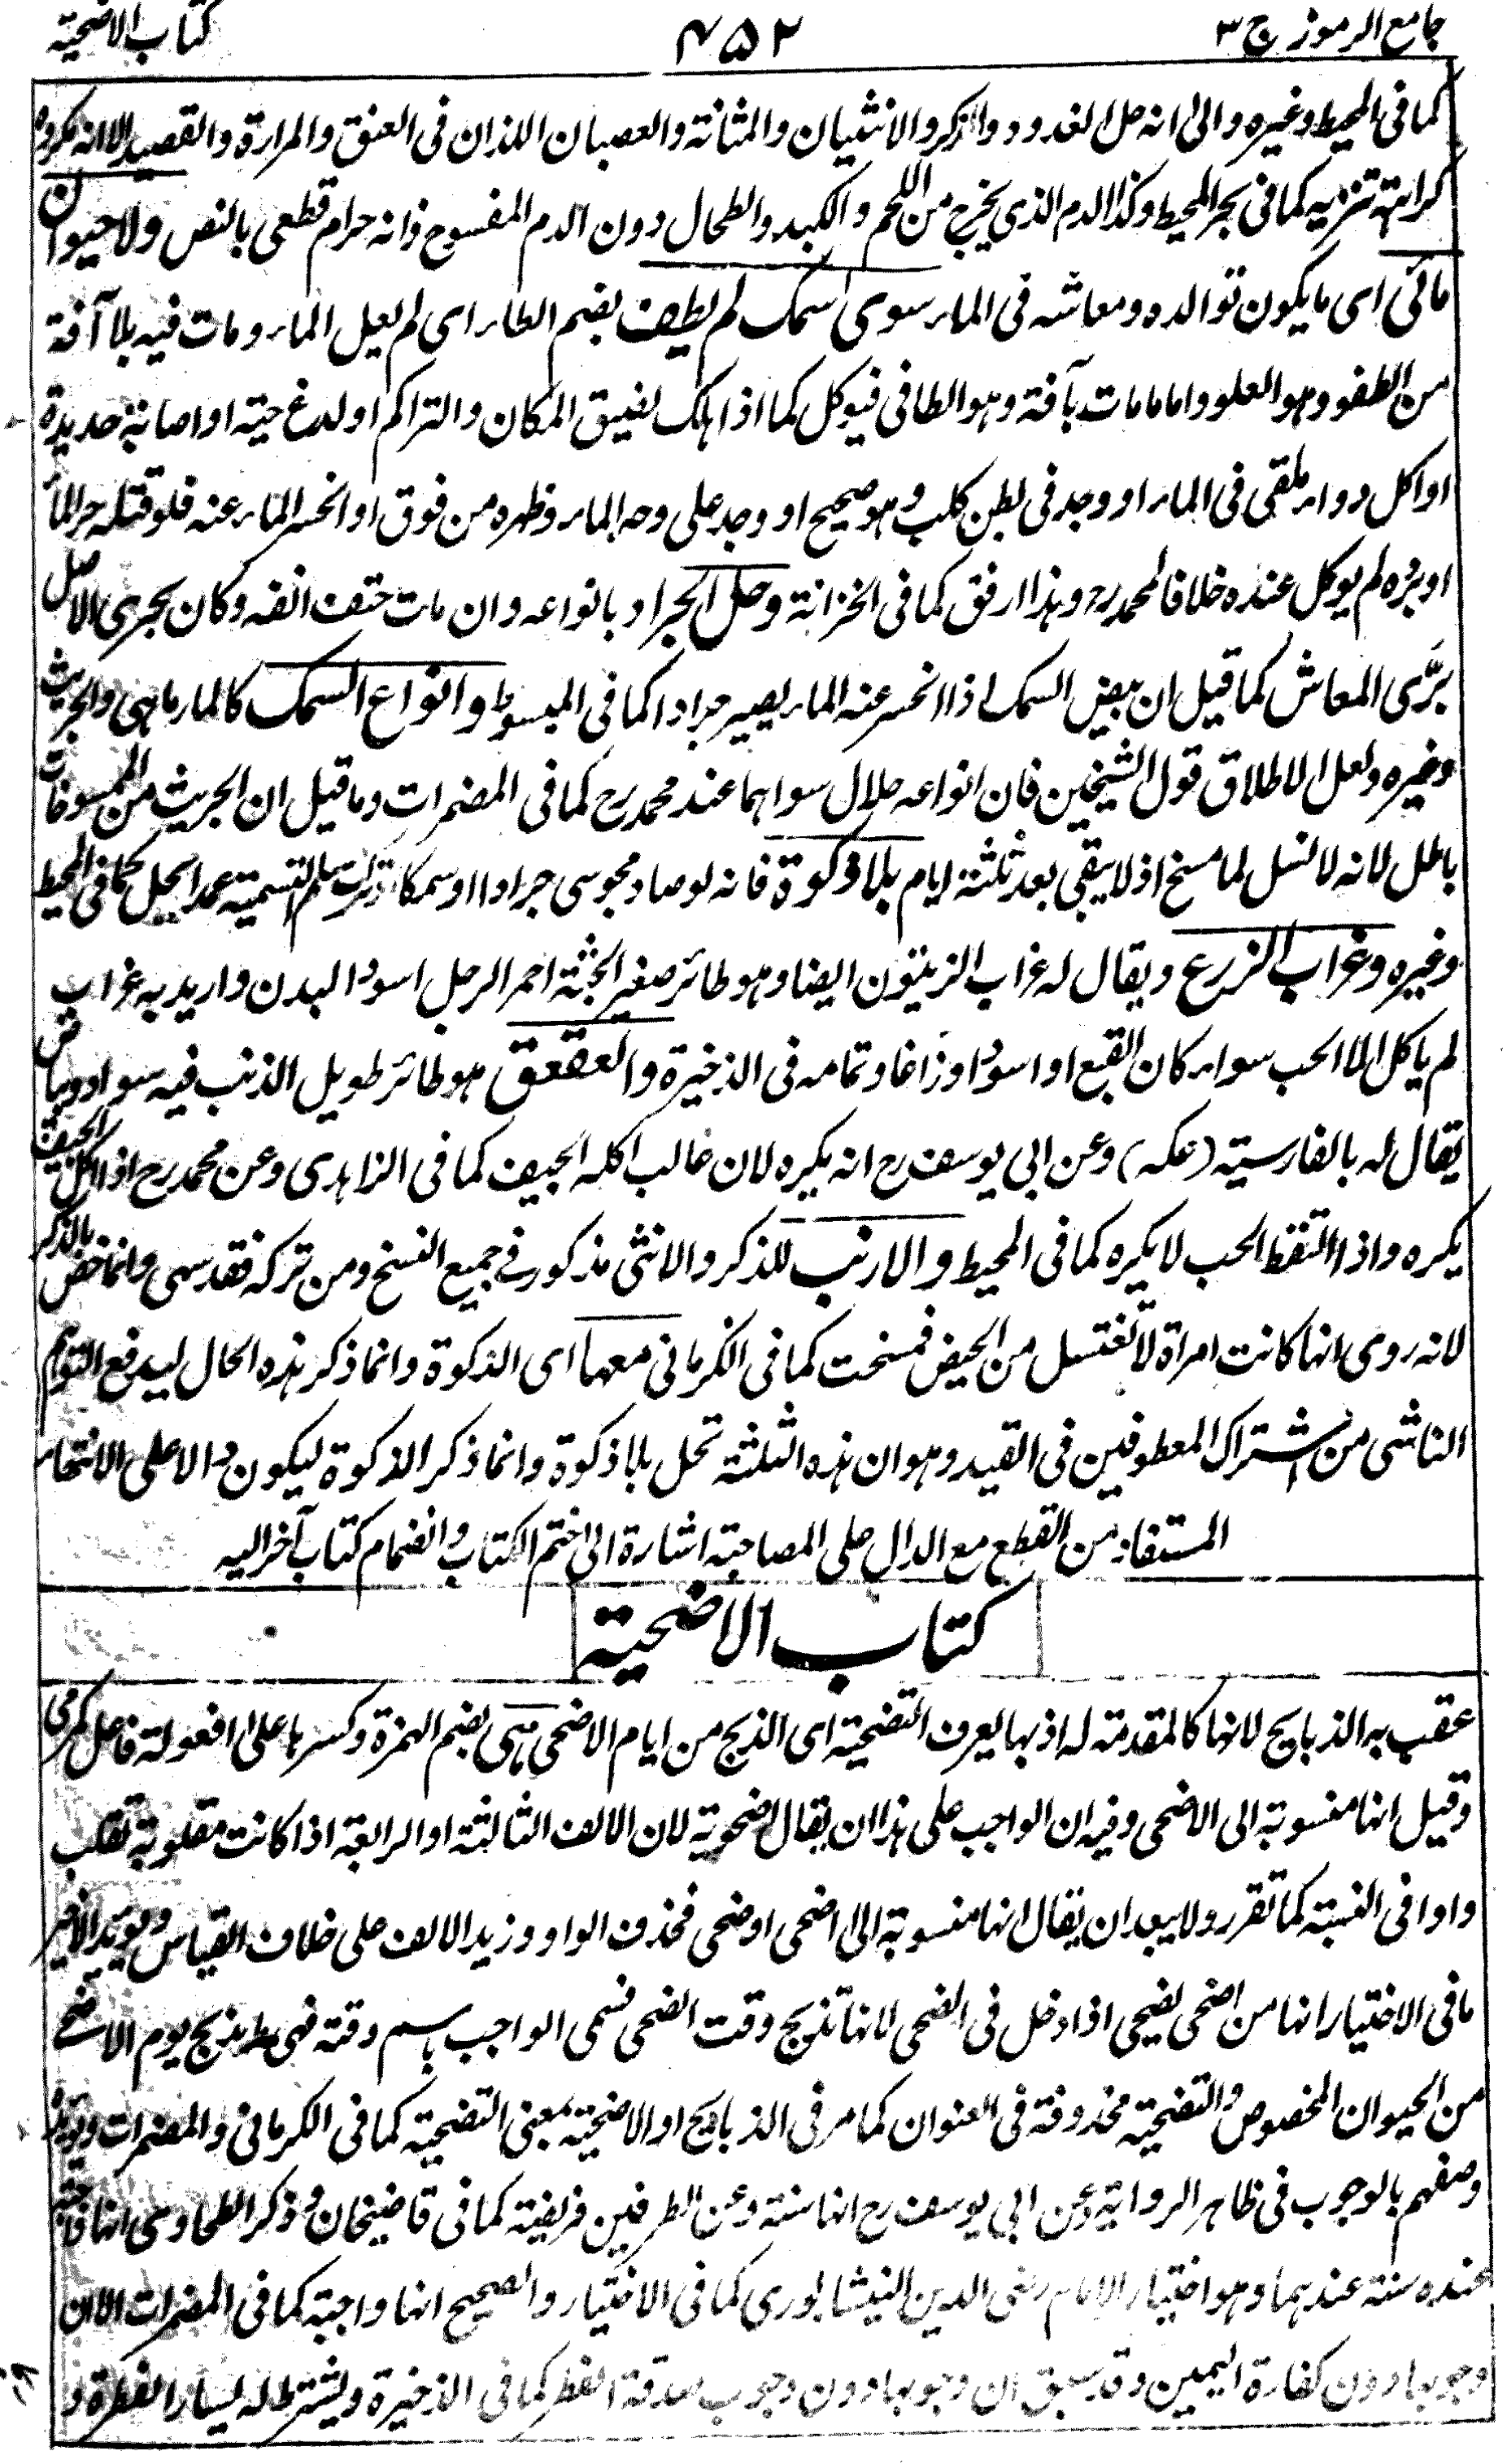 جامع الرموز ج ٣
٤٥٢
كتاب الاضحية
كما فى المحيط وغيره والى انه حل الغدود والذكر والانثيان والمثانة والعصبان اللذان فى العنق والمرارة والقصيد الا انه مكروه
كراهة تنزيه كما فى بحر المحيط وكذا الدم الذي يخرج من اللحم والكبد والطحال دون الدم المفسوح فانه حرام قطعى بالنص ولا حيوان
مائى اى ما يكون توالده ومعاشه فى الماء سوى سمك لم يطف بضم الطاء اى لم يعل الماء ومات فيه بلا آفة
من الطفو وهو العلو واما ما مات بآفة وهو الطافى فيوكل كما اذا هلك لضيق المكان والتراكم او لدغ حية او اصابة حديدة
او اكل دواء ملقى فى الماء او وجد فى بطن كلب وهو صحيح او وجد على وجه الماء وظهره من فوق او انحسر الماء عنه فلو قتله حر الماء
او برده لم يوكل عنده خلافا لمحمد رح وهذا ارفق كما فى الخزانة وحل الجراد بانواعه وان مات حتف انفه وكان بحرى الاصل
برّى المعاش كما قيل ان بيض السمك اذا انحسر عنه الماء يصير جرادا كما فى المبسوط وانواع السمك كالمار ماهى والجريث
وغيره ولعل الاطلاق قول الشيخين فان انواعه حلال سواهما عند محمد رح كما فى المضمرات وما قيل ان الجريث من الممسوخات
باطل لانه لا نسل لما مسخ اذ لا يبقى بعد ثلثة ايام بلا ذكوة فانه لو صاد مجوسى جرادا او سمكا او ترك مسلم التسمية عمدا يحل كما فى المحيط
وغيره وغراب الزرع ويقال له غراب الزيتون ايضا وهو طائر صغير الجثة احمر الرجل اسود البدن واريد به غراب
لم ياكل الا الحب سواء كان ابقع او اسود او زاغا وتمامه فى الذخيرة والعقعق هو طائر طويل الذنب فيه سواد وبياض
يقال له بالفارسية (عكه) وعن ابى يوسف رح انه يكره لان غالب اكله الجيف كما فى الزاهدى وعن محمد رح اذا اكل الجيف
يكره واذا التقط الحب لا يكره كما فى المحيط والارنب للذكر والانثى مذكور فى جميع النسخ ومن تركه فقد سهى وانما خص بالذكر
لانه روى انها كانت امراة لا تغتسل من الحيض فمسخت كما فى الكرمانى معها اى الذكوة وانما ذكر هذه الحال ليدفع التوهم
الناشى من اشتراك المعطوفين فى القيد وهو ان هذه الثلثة تحل بلا ذكوة وانما ذكر الذكوة ليكون دالا على الانتهاء
المستفاد من القطع مع الدال على المصاحبة اشارة الى ختم الكتاب وانضمام كتاب آخر اليه
كتاب الاضحية
عقب به الذبايح لانها كالمقدمة له اذ بها يعرف التضحية اى الذبح من ايام الاضحى هى بضم الهمزة وكسرها على افعولة فاعل كمرمى
وقيل انها منسوبة الى الاضحى وفيه ان الواجب على هذا ان يقال اضحوية لان الالف الثالثة او الرابعة اذا كانت مقلوبة تقلب
واوا فى النسبة كما تقرر ولا يبعد ان يقال انها منسوبة الى اضحى او ضحى فحذف الواو وزيد الالف على خلاف القياس ويويد الاخير
ما فى الاختيار انها من اضحى يضحى اذا دخل فى الضحى لانها تذبح وقت الضحى فسمى الواجب باسم وقته فهى ما يذبح يوم الاضحى
من الحيوان المخصوص والتضحية محذوفة فى العنوان كما مر فى الذبايح او الاضحية بمعنى التضحية كما فى الكرمانى والمضمرات ويويد
وصفهم بالوجوب فى ظاهر الرواية وعن ابى يوسف رح انها سنة وعن الطرفين فريضة كما فى قاضيخان وذكر الطحاوى انها واجبة
عنده سنة عندهما وهو اختيار الامام رضى الدين النيشابورى كما فى الاختيار والصحيح انها واجبة كما فى المضمرات الا ان
وجوبها دون كفارة اليمين وقد سبق ان وجوبها دون وجوب صدقة الفطر كما فى الذخيرة ويشترط له يسار الفطرة و